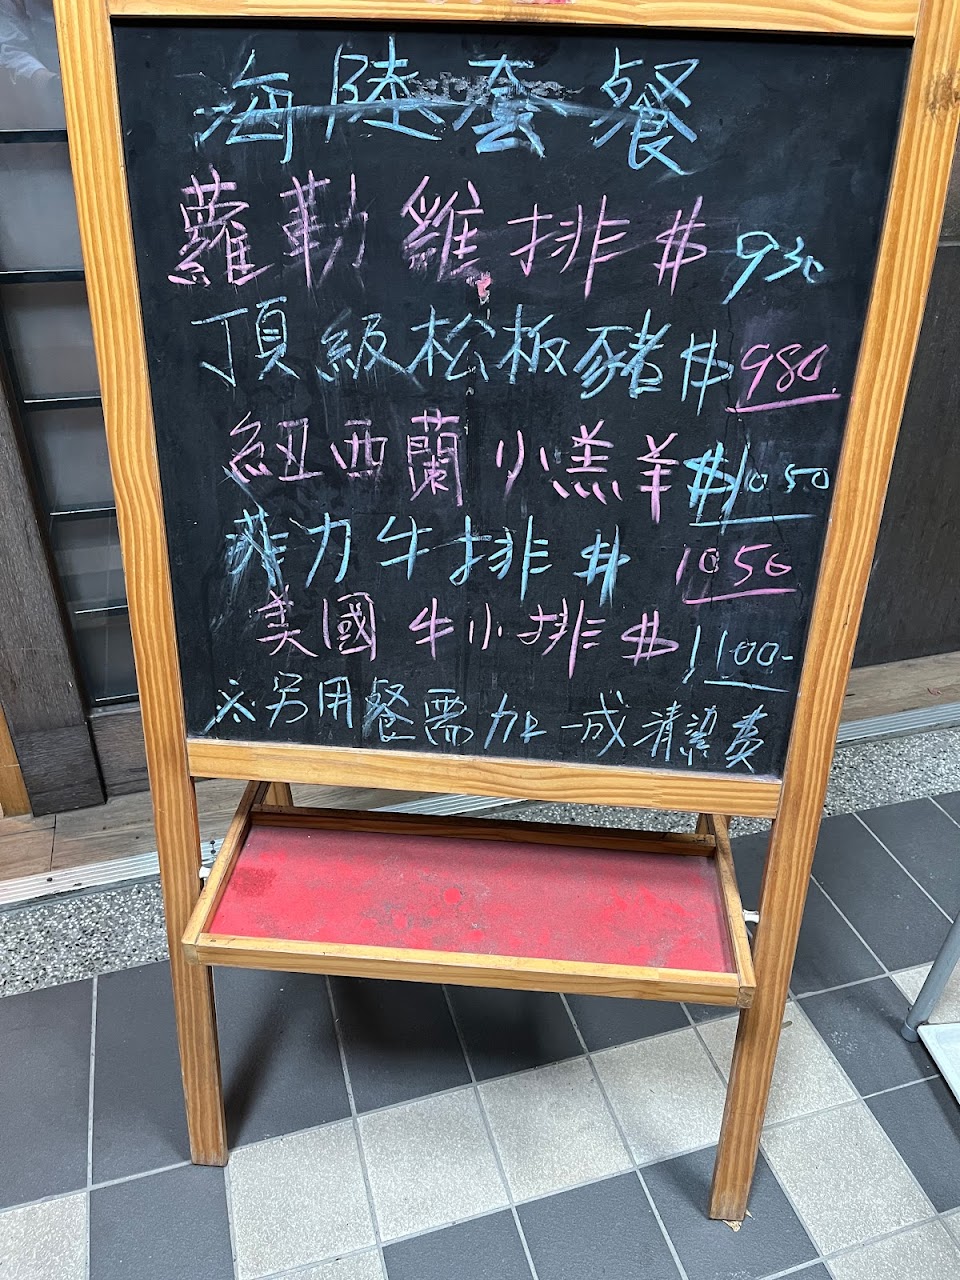 海陸套餐
蘿勒雞排 $ 930
頂級松板豬 $ 980.
紐西蘭小羔羊 $1050
菲力牛排 $ 1050
美國牛小排 $ 1100-
※另用餐需加一成清潔費